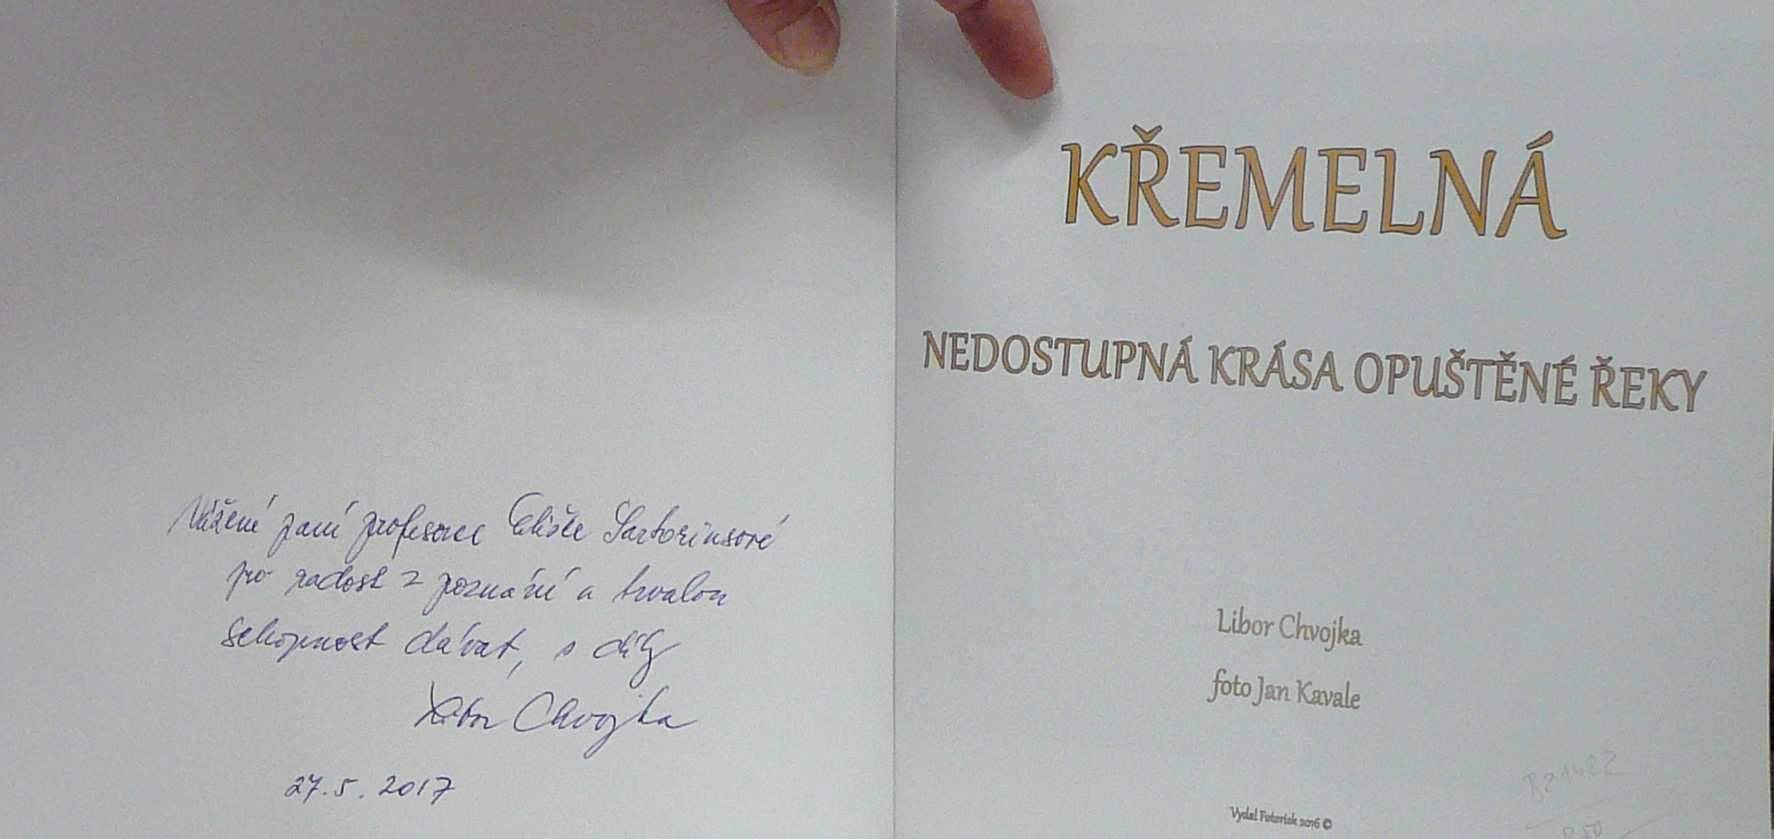 Vážené paní profesorce Elišce Sartoriusové
pro radost z poznání a trvalou
schopnost dávat, s díky
Libor Chvojka
27.5.2017
KŘEMELNÁ
NEDOSTUPNÁ KRÁSA OPUŠTĚNÉ ŘEKY
Libor Chvojka
foto Jan Kavale
Vydal Fotoriok 2016 ©